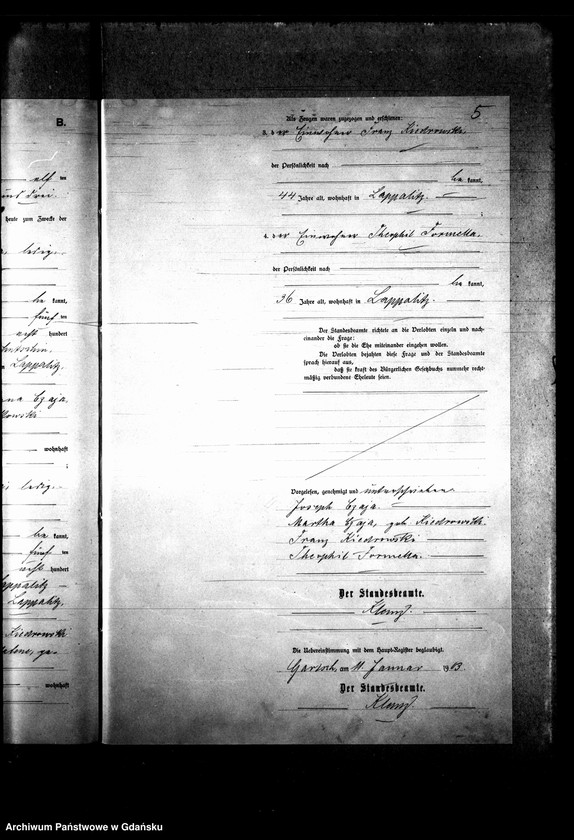 B.
elf
und drei
heute zum Zwecke der
ledig
be kannt,
fünf
acht hundert
Lappalitz
Czaja
wohnhaft
;
ledig
be kannt,
fünf
acht hundert
Lappalitz
Lappalitz,
Kiedrowski
wohnhaft
5
Als Zeugen waren zugezogen und erschienen:
der Einwohner Franz Kiedrowski,
der Persönlichkeit nach
be kannt,
44 Jahre alt, wohnhaft in Lappalitz.
;
4. der Einwohner Theophil Formella.
der Persönlichkeit nach
be kannt,
36 Jahre alt, wohnhaft in Lappalitz.
Der Standesbeamte richtete an die Verlobten einzeln und nach-
einander die Frage:
ob sie die Ehe miteinander eingehen wollen.
Die Verlobten bejahten diese Frage und der Standesbeamte
sprach hierauf aus,
daß sie kraft des Bürgerlichen Gesetzbuchs nunmehr recht-
mäßig verbundene Eheleute seien.
Vorgelesen, genehmigt und unterschrieben
Joseph Czaja.
Martha Czaja, geb. Kiedrowski
Franz Kiedrowski
Theophil Formella.
Der Standesbeamte.
Die Uebereinstimmung mit dem Haupt-Register beglaubigt.
am 11. Januar 1903.
Der Standesbeamte.
Archiwum Państwowe w Gdańsku